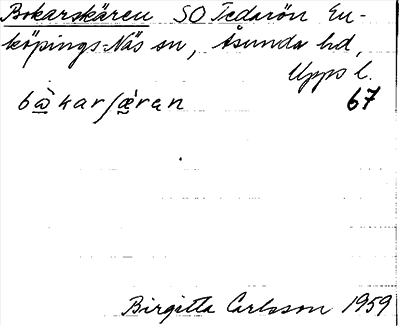 Bokarskären SO Tedarön En-
köpings-Näs sn, Åsunda hd,
Upps l.
bὰ̱karʃæ̱̀ran 67
Birgitta Carlsson 1959